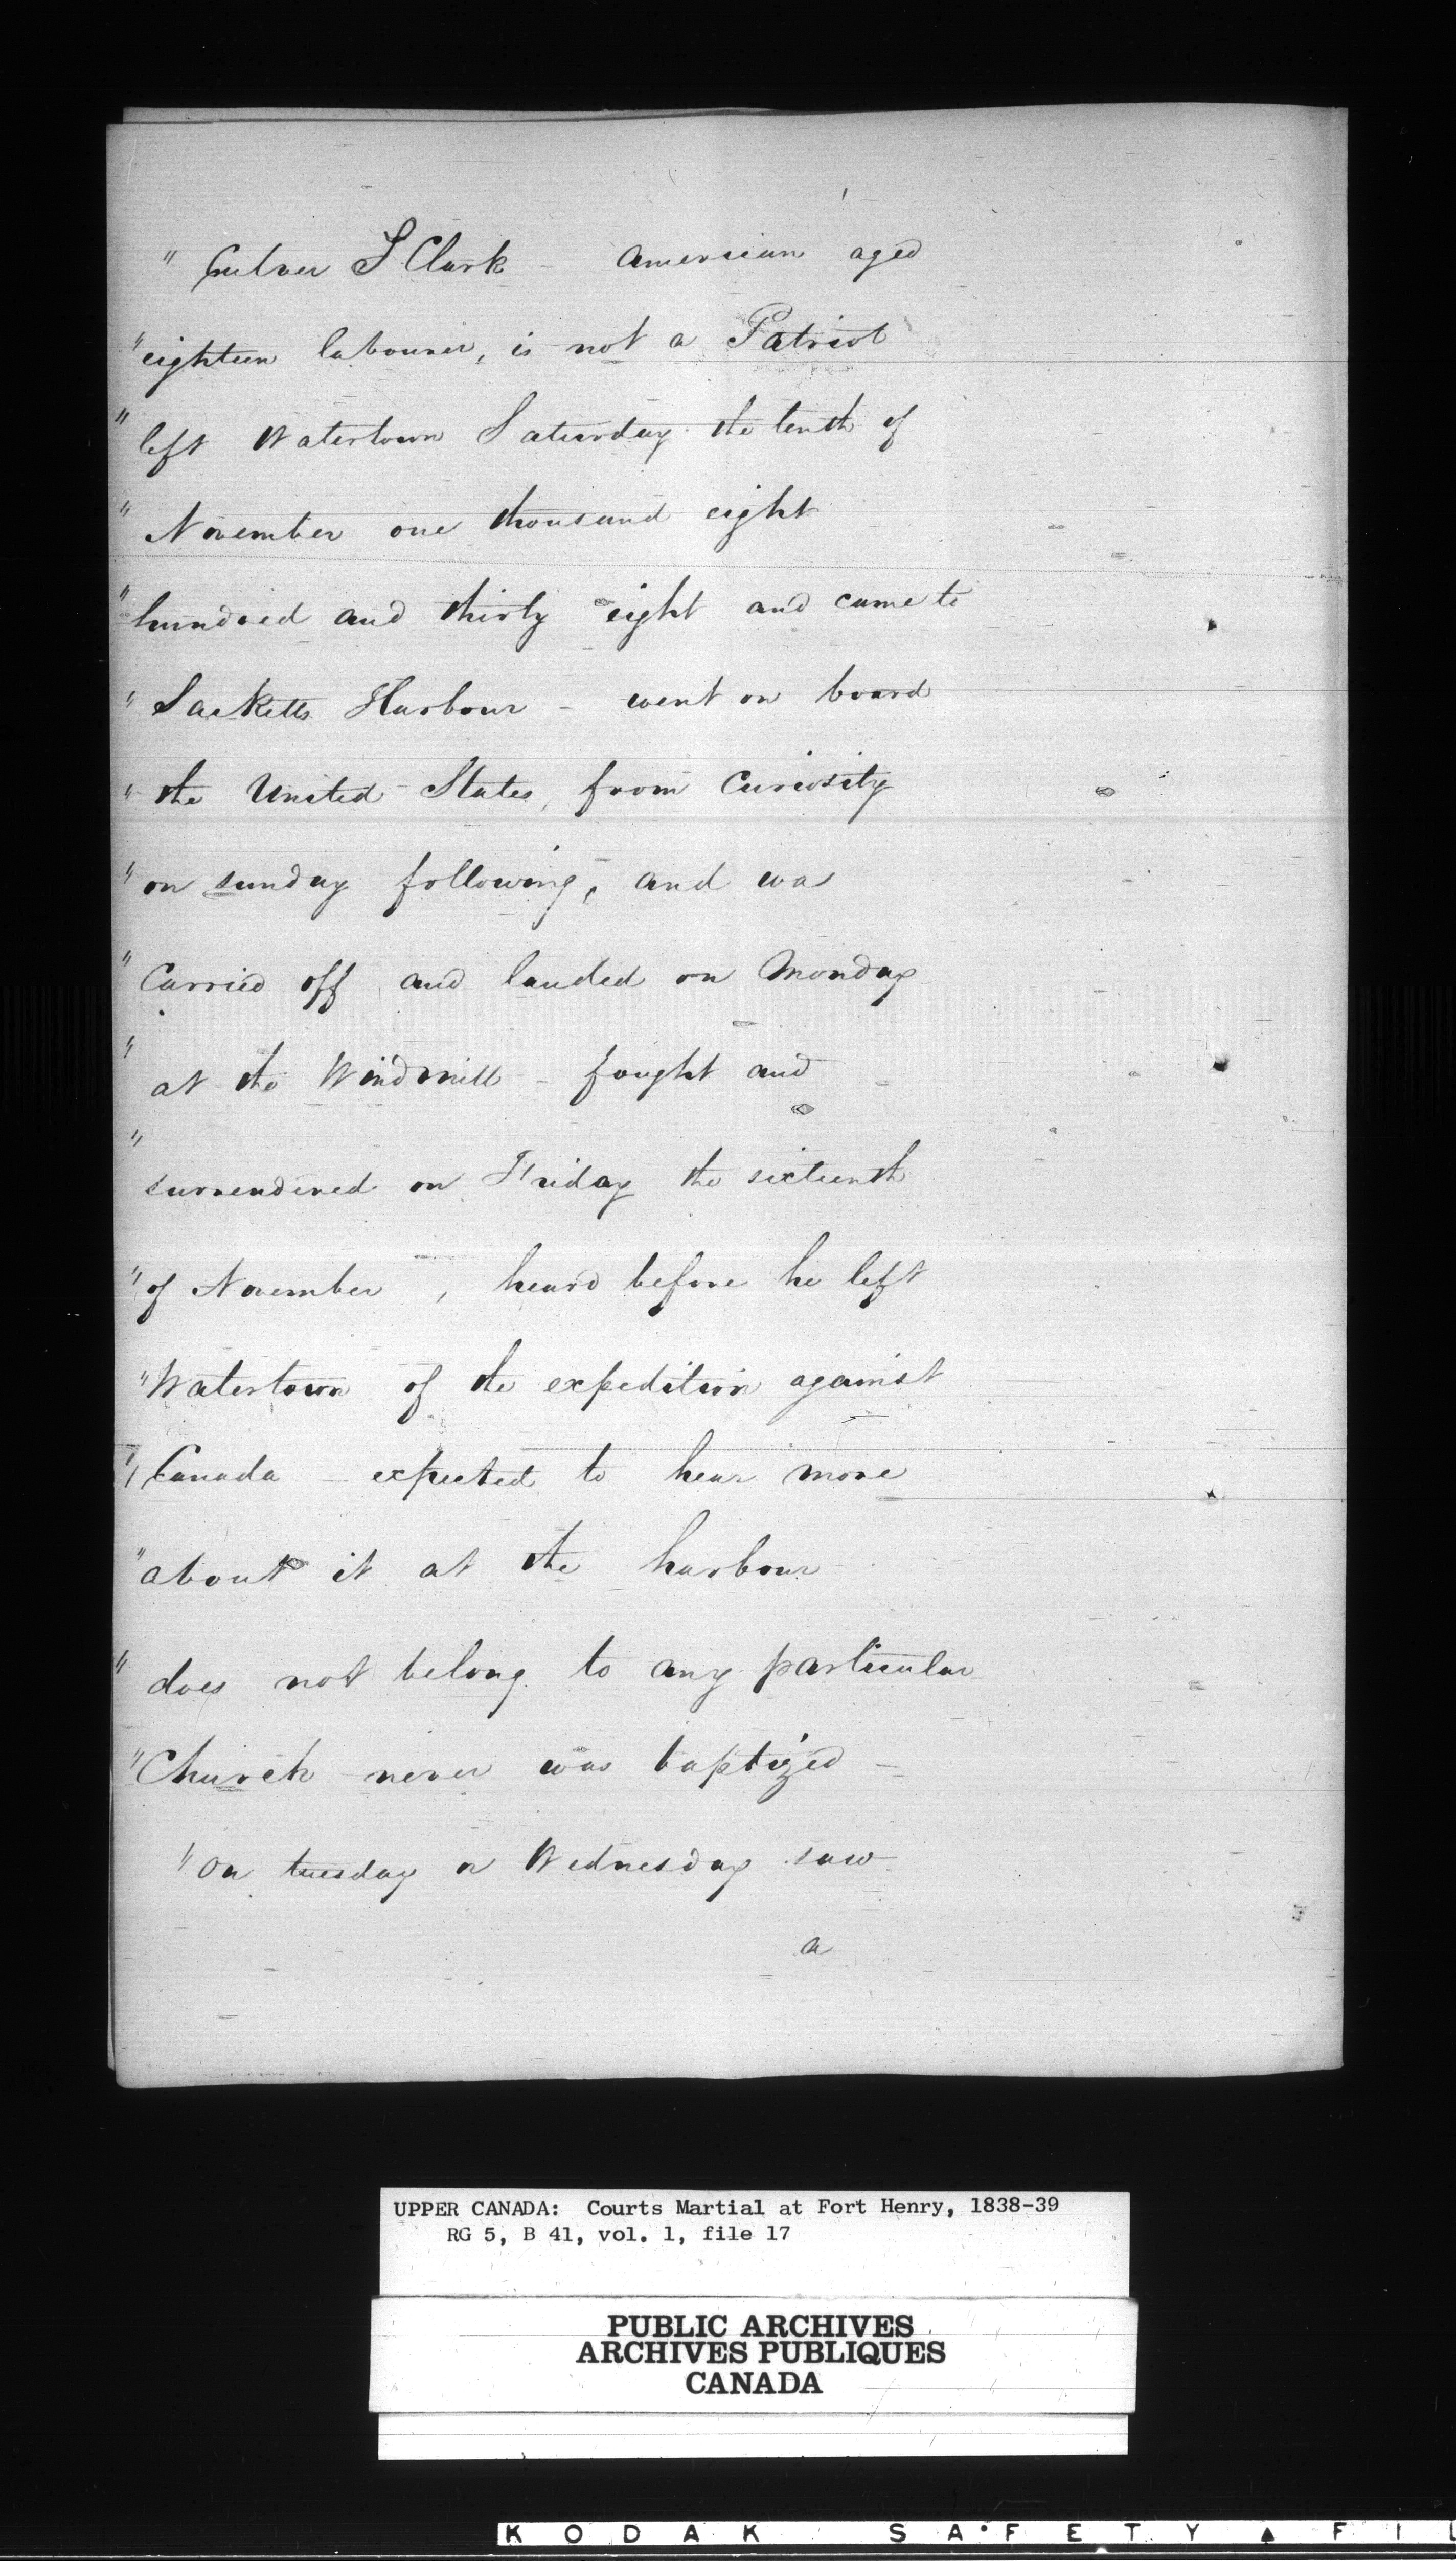 " Culver S Clark - American aged
" eighteen labourer, is not a Patriot
" left Watertown Saturday the tenth of
" November one thousand eight
" hundred and thirty eight and came to
" Sacketts Harbour - went on board
" the United States, from Curiosity
" on sunday following, and was
" Carried off and landed on Monday
" at the Windmill - fought and
" surrendered on Friday the sixteenth
" of November, heard before he left
" Watertown of the expedition against
" Canada - expected to hear more
" about it at the harbour
" does not belong to any particular
" Church never was baptized -
" On tuesday or Wednesday saw
a
UPPER CANADA: Courts Martial at Fort Henry, 1838-39
RG 5, B 41, vol. 1, file 17
PUBLIC ARCHIVES
ARCHIVES PUBLIQUES
CANADA
KODAK SAFETY ▲ FIL